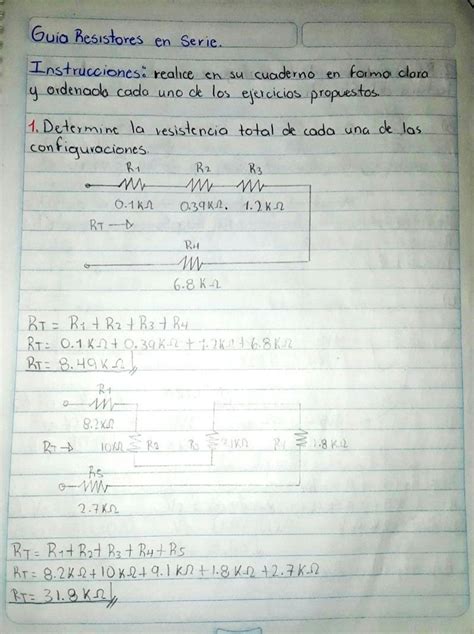 Guia Resistores en Serie.
Instrucciones: realice en su cuaderno en forma clara
y ordenada cada uno de los ejercicios propuestos.
1. Determine la resistencia total de cada una de las
configuraciones.
R1 R2 R3
0.1KΩ 0.39KΩ. 1.2KΩ
RT →
R4
6.8KΩ
RT = R1 + R2 + R3 + R4
RT = 0.1KΩ + 0.39KΩ + 1.2KΩ + 6.8KΩ
RT = 8.49KΩ
R1
8.2KΩ
RT → 10KΩ R2 R3 9.1KΩ R4 1.8KΩ
R5
2.7KΩ
RT = R1 + R2 + R3 + R4 + R5
RT = 8.2KΩ + 10KΩ + 9.1KΩ + 1.8KΩ + 2.7KΩ
RT = 31.8KΩ